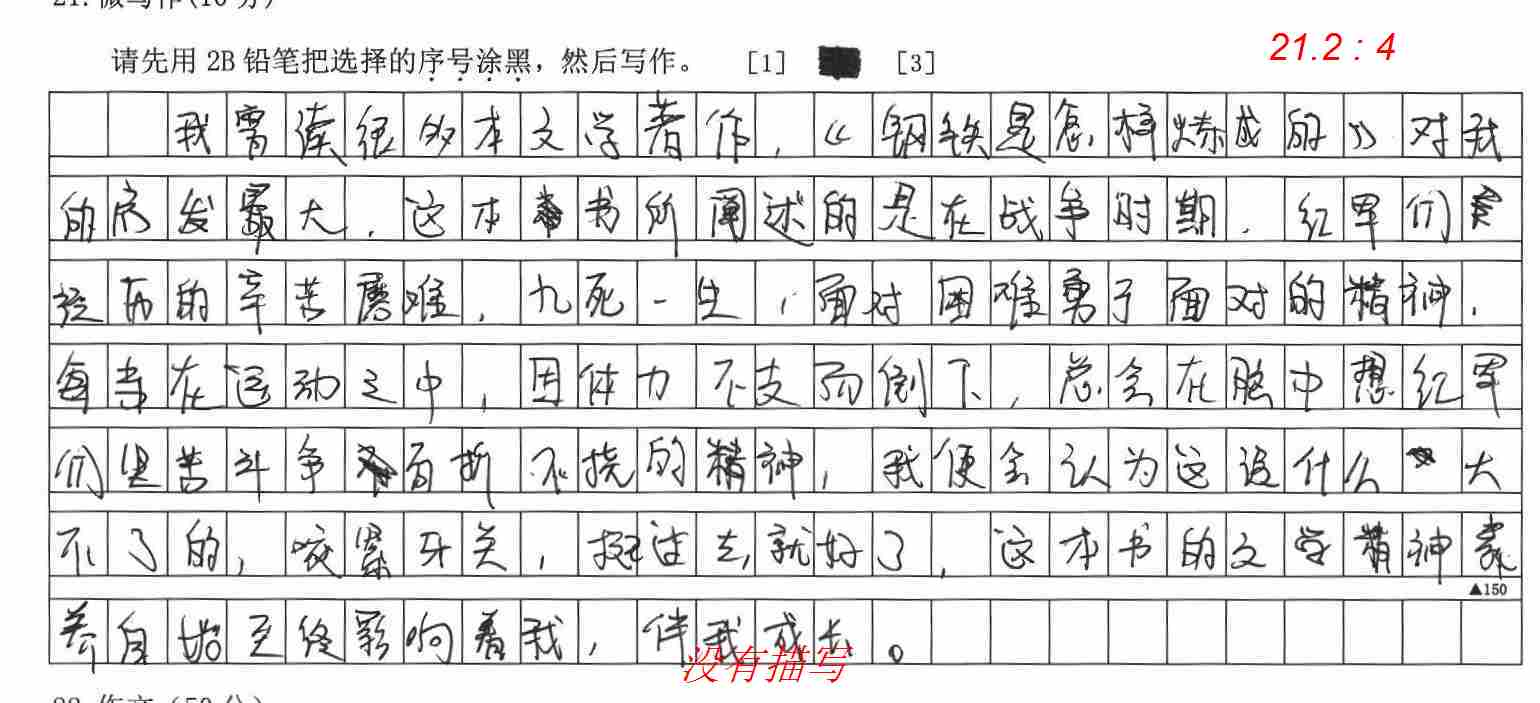 21.微写作(10分)
请先用 2B 铅笔把选择的序号涂黑，然后写作。 [1] [3]
21.2 : 4
我曾读很多本文学著作，《钢铁是怎样炼成的》对我
的启发最大，这本书所阐述的是在战争时期，红军们
经历的辛苦磨难，九死一生，面对困难勇于面对的精神，
每当在运动之中，因体力不支而倒下，总会在脑中想红军
们坚苦斗争百折不挠的精神，我便会认为这没什么大
不了的，咬紧牙关，挺过去就好了，这本书的文学精神
▲150
自始至终影响着我，伴我成长。
没有描写
22.作文(50分)